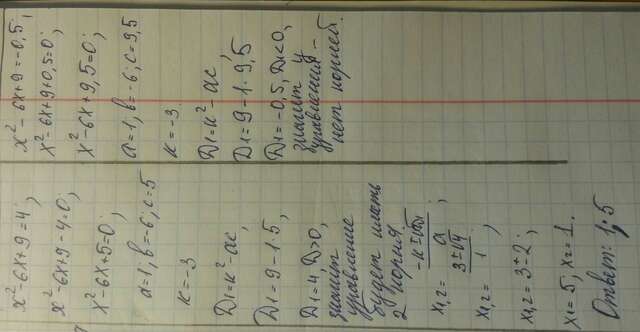 x²-6x+9=4;
x²-6x+9-4=0;
x²-6x+5=0;
a=1, b=-6; c=5
к=-3
D₁=к²-ac;
D₁=9-1·5;
D₁=4, D>0,
значит
уравнение
будет иметь
2 корня
x₁,₂ = (-к±√D₁)/a
x₁,₂ = (3±√4)/1;
x₁,₂=3±2;
x₁=5; x₂=1.
Ответ: 1; 5
x²-6x+9=-0,5;
x²-6x+9+0,5=0;
x²-6x+9,5=0;
a=1, b=-6; c=9,5
к=-3
D₁=к²-ac
D₁=9-1·9,5
D₁=-0,5, D₁<0,
значит у
уравнения -
нет корней.